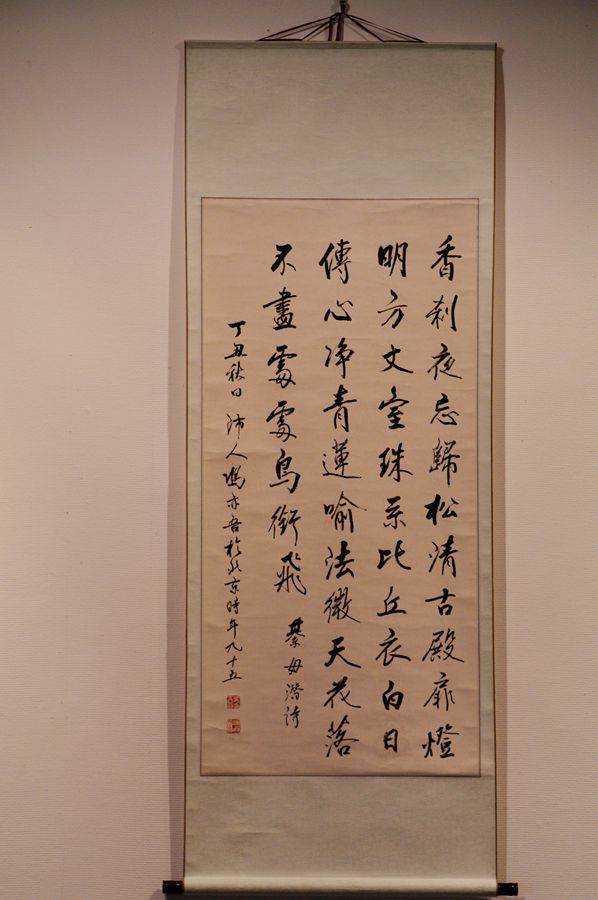 香刹夜忘歸松清古殿扉燈
明方丈室珠系比丘衣白日
傳心净青蓮喻法微天花落
不盡處處鳥銜飛
綦毋潜詩
丁丑秋日沛人馮亦吾於北京時年九十五